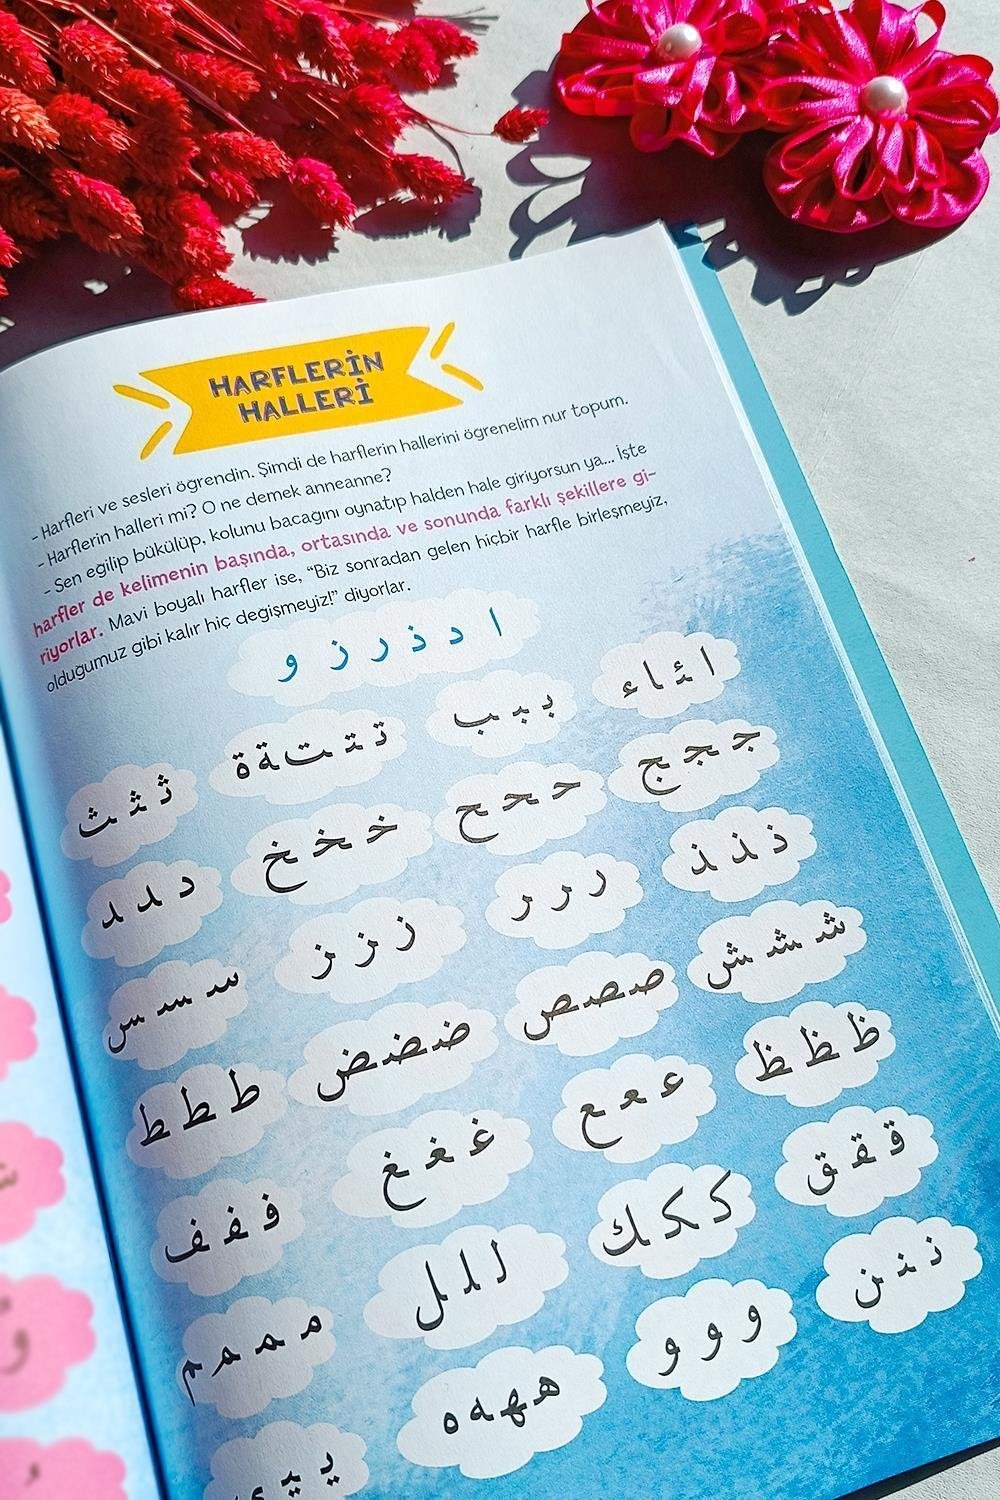 HARFLERİN
HALLERİ
- Harfleri ve sesleri öğrendin. Şimdi de harflerin hallerini öğrenelim nur topum.
- Harflerin halleri mi? O ne demek anneanne?
- Sen eğilip bükülüp, kolunu bacağını oynatıp halden hale giriyorsun ya... İşte
harfler de kelimenin başında, ortasında ve sonunda farklı şekillere gi-
riyorlar. Mavi boyalı harfler ise, “Biz sonradan gelen hiçbir harfle birleşmeyiz,
olduğumuz gibi kalır hiç değişmeyiz!” diyorlar.
ا د ذ ر ز و
ا ئ ا ء
ببب
تتتةة
ثثث
ججج
ححح
خخخ
د د د
ذ ذ ذ
ر ر ر
ز ز ز
سسس
ششش
صصص
ضضض
ططط
ظظظ
ععع
غغغ
ففف
ققق
ككك
للل
مممم
ننن
و و و
هههه